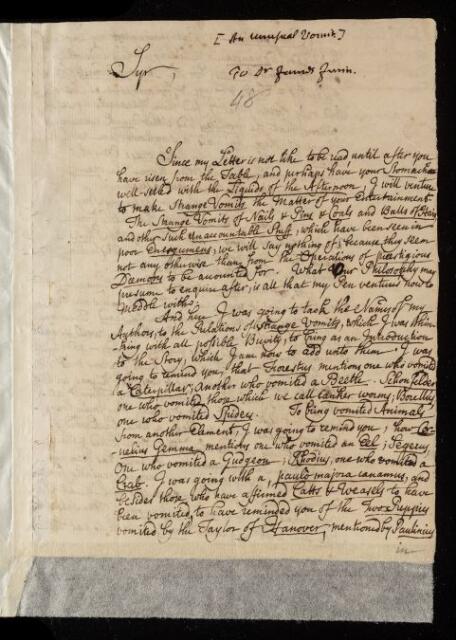 [An unusual Vomit.]
Syr,
To Dr James Jurin.
48
Since my Letter is not like to be read until after you
have risen from the Table, and perhaps have your Stomachs
well-setled with the Liquids of the Afternoon, I will venture
to make Strange Vomits the Matter of your Entertainment.
The Strange Vomits of Nails & Pins & Coals and Balls of Hair
and other such unaccountable Stuff, which have been seen in
poor Energumens; we will say nothing of; because they seem
not any otherwise than from the Operations of prestigious
Dæmons to be accounted for. What Our Philosophy may
presume to enquire after, is all that my Pen ventures now to
Meddle withal.
And here I was going to tack the Names of my
Authors, to the Relations of Strange Vomits, which I was
with all possible Brevity, to bring as an Introduction
to the Story, which I am now to add unto them. I was
going to remind you, that Forestus mentions one who vomited
a Caterpillar; Another who vomited a Beetle. Schonfelder
one who vomited those which we call Canker worms; Borellus
one who vomited Spiders. To bring vomited Animals
from another Element, I was going to remind you, how Cor-
nelius Gemma mentions one who vomited an Eel; Segerus,
One who vomited a Gudgeon; Rhodius, one who vomited a
Crab. I was going with a, paulo majora canamus; and
besides those who have affirmed Catts & Weasels to have
been vomited, to have reminded you of the two Puppies
vomited by the Taylor of Hanover, mentioned by Paulinus
in